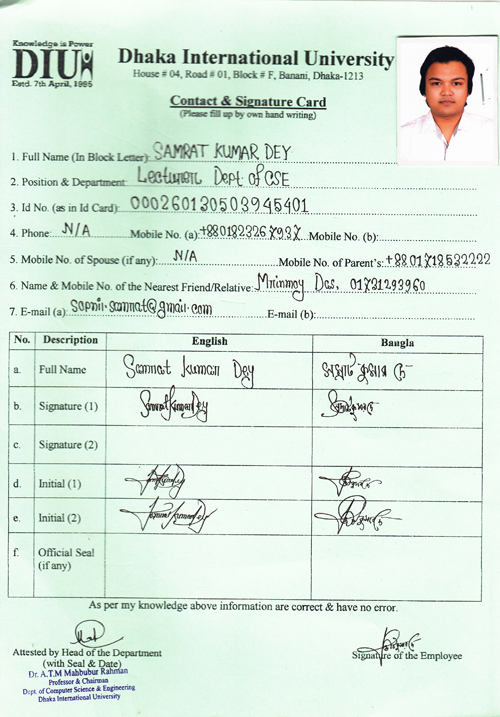 Knowledge is Power
DIU
Estd. 7th April, 1995
Dhaka International University
House # 04, Road # 01, Block # F, Banani, Dhaka-1213
Contact & Signature Card
(Please fill up by own hand writing)
1. Full Name (In Block Letter): SAMRAT KUMAR DEY
2. Position & Department: Lecturer, Dept. of CSE
3. Id No. (as in Id Card): 000260130503945401
4. Phone: N/A Mobile No. (a): +8801823267937 Mobile No. (b):
5. Mobile No. of Spouse (if any): N/A Mobile No. of Parent's: +8801718532222
6. Name & Mobile No. of the Nearest Friend/Relative: Mrinmoy Das, 01731293960
7. E-mail (a): sopnil.samrat@gmail.com E-mail (b):
No. Description English Bangla
a. Full Name Samrat Kumar Dey সম্রাট কুমার দে
b. Signature (1) Samrat Kumar Dey
c. Signature (2)
d. Initial (1)
e. Initial (2) Samrat Kumar Dey
f. Official Seal
(if any)
As per my knowledge above information are correct & have no error.
Attested by Head of the Department
(with Seal & Date)
Signature of the Employee
Dr. A.T.M Mahbubur Rahman
Professor & Chairman
Dept. of Computer Science & Engineering
Dhaka International University